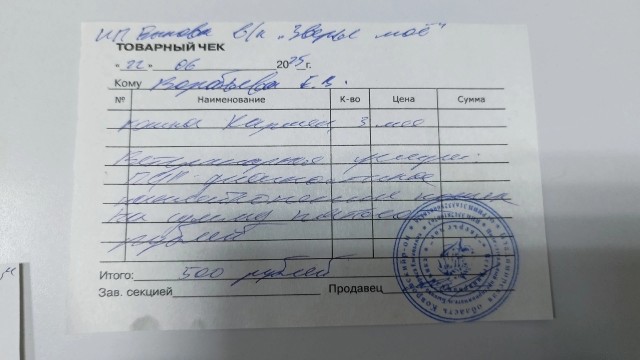 ИП Быкова в/к "Зверье моё"
ТОВАРНЫЙ ЧЕК
"22" 06 2025 г.
Кому Воробьева Е.В.
№ Наименование К-во Цена Сумма
кошка Кармен 3 мес
Ветеринарная услуги:
ПЦР-диагностика
на сумму пятьсот
рублей
Итого: 500 рублей
Зав. секцией Продавец